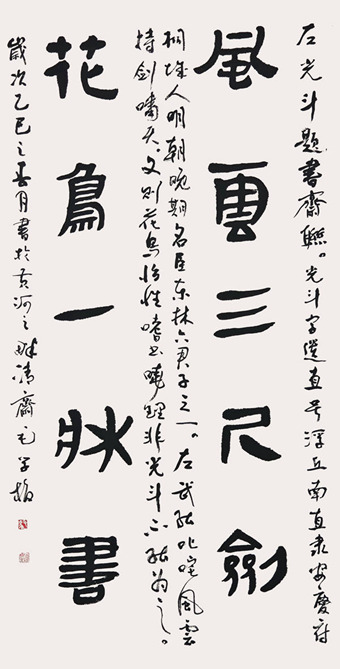 左光斗题書齋聯。光斗字遗直号浮丘南直隶安慶府
風雲三尺劍
桐城人明朝晚期名臣东林六君子之一。左武能叱咤風雲
持剑啸天。文则花鸟怡性嗜书晓理非光斗不能为之。
花鳥一牀書
歲次乙巳之春月書於黄河之畔清齋毛